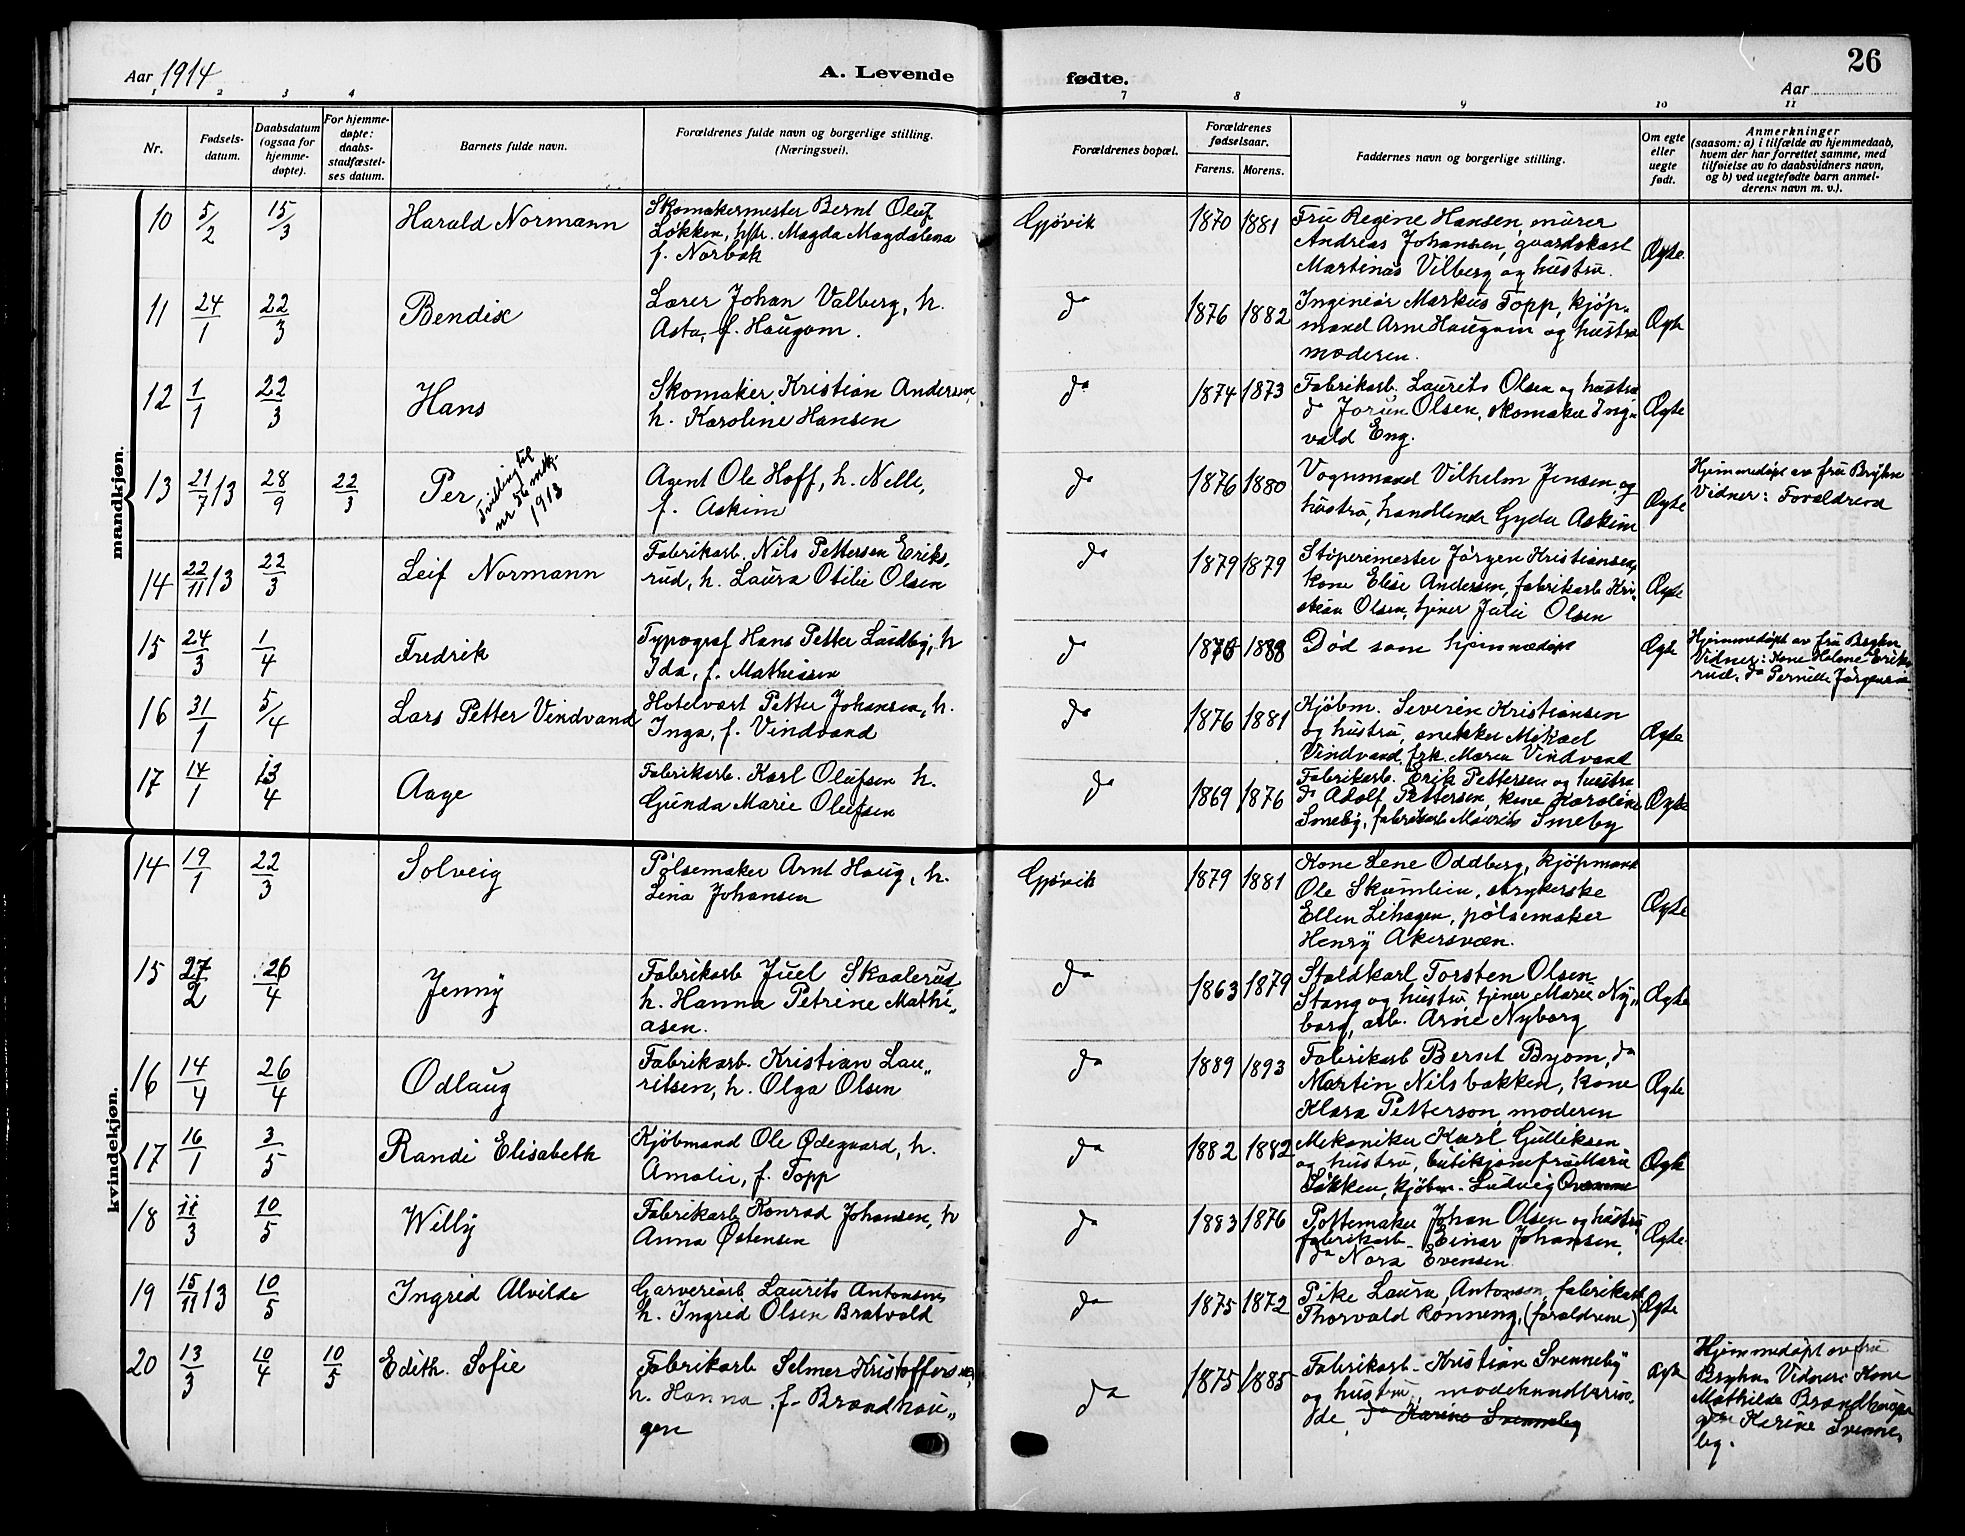 Aar 1914
A. Levende
fødte.
26
Aar
1 2 3 4 7 8 9 10 11
Nr.
Fødsels-
datum.
Daabsdatum
(ogsaa for
hjemme-
døpte).
For hjemme-
døpte:
daabs-
stadfæstel-
ses datum.
Barnets fulde navn.
Forældrenes fulde navn og borgerlige stilling.
(Næringsvei).
Forældrenes bopæl.
Forældrenes
fødselsaar.
Farens. Morens.
Faddernes navn og borgerlige stilling.
Om egte
eller
uegte
født.
Anmerkninger
(saasom: a) i tilfælde av hjemmedaab,
hvem der har forrettet samme, med
tilføielse av to daabsvidners navn,
og b) ved uegtefødte barn anmel-
derens navn m. v.).
mandkjøn.
10 5/2 15/3 Harald Normann
Skomakermester Bernt Oluf
Løkken, h/str. Magda Magdalena
f. Norbak
Gjøvik 1870 1881
Fru Regine Hansen, murer
Andreas Johansen, gaardskarl
Martinus Vilberg og hustru.
Ægte.
11 24/1 22/3 Bendix
Lærer Johan Valberg, h.
Asta, f. Haugom.
do 1876 1882
Ingeniør Markus Topp, kjøp-
mand Arne Haugom og hustru
moderen.
Ægte
12 1/1 22/3 Hans
Skomaker Kristian Andersen
h. Karoline Hansen
do 1874 1873
Fabrikarb. Laurits Olsen og hustru
do Jorun Olsen, skomaker Ing-
vald Eng.
Ægte
13 21/7 13 28/9 22/3 Per,
Tvilling til
nr 56 mtkj.
1913
Agent Ole Hoff, h. Nelle,
f. Askim
do 1876 1880
Vognmand Vilhelm Jensen og
hustru, handlende Gyda Askim
Ægte
Hjemmedøpt av fru Bryhn
Vidner: Forældrene
14 22/11 13 22/3 Leif Normann
Fabrikarb. Nils Pettersen Eriks-
rud, h. Laura Otilie Olsen
do 1879 1879
Støperimester Jørgen Kristiansen,
kone Elise Andersen, fabrikarb Kri-
stian Olsen, tjener Julie Olsen
Ægte
15 24/3 1/4 Fredrik
Typograf Hans Petter Lundby, h
Ida, f. Mathisen
do 1876 1888
Død som hjemmedøpt
Ægte
Hjemmedøpt av fru Bryhn
Vidner: Kone Helene Eriks-
rud, do Pernille Jørgensen
16 31/1 5/4 Lars Petter Vindvand
Hotelvært Petter Johansen, h.
Inga, f. Vindvand
do 1876 1881
Kjøbm. Severin Kristiansen
og hustru, snekker Mikael
Vindvand, frk. Maren Vindvand
Ægte
17 14/1 13/4 Aage
Fabrikarb. Karl Olufsen h.
Gunda Marie Olufsen
do 1869 1876
Fabrikarb. Erik Pettersen og hustru
do Adolf Pettersen, kone Karoline
Smeby, fabrikarb Maurits Smeby
Ægte
kvindekjøn.
14 19/1 22/3 Solveig
Pølsemaker Arnt Haug, h.
Lina Johansen
Gjøvik 1879 1881
Kone Lene Oddberg, kjøpmand
Ole Skumlien, strykerske
Ellen Lihagen, pølsemaker
Henry Akersvæn.
Ægte
15 27/2 26/4 Jenny
Fabrikarb Juel Skaalerud
h. Hanna Petrine Mathi-
asen.
do 1863 1879
Staldkarl Torsten Olsen
Stang og hustru, tjener Marie Ny-
borg, arb. Arne Nyborg
Ægte
16 14/4 26/4 Odlaug
Fabrikarb. Kristian Lau-
ritsen, h. Olga Olsen
do 1889 1893
Fabrikarb Bernt Byom, do
Martin Nilsbakken, kone
Klara Petterson, moderen
Ægte
17 16/1 3/5 Randi Elisabeth
Kjøbmand Ole Ødegaard, h.
Amalie, f. Topp
do 1882 1882
Mekaniker Karl Gulliksen
og hustru, butikjomfru Marie
Løkken, kjøbm. Ludvig Svamme
Ægte
18 11/3 10/5 Willy
Fabrikarb Konrad Johansen, h
Anna Østensen
do 1883 1876
Pottemaker Johan Olsen og hustru,
fabrikarb. Einar Johansen,
do Nora Evensen.
Ægte.
19 15/11 13 10/5 Ingrid Alvilde
Garveriarb Laurits Antonsen
h. Ingrid Olsen Bratvold
do 1875 1872
Pike Laura Antonsen, fabrikarb
Thorvald Rønneng, (forældrene)
Ægte
20 13/3 10/4 10/5 Edith Sofie
Fabrikarb Selmer Kristoffersen,
h. Hanna f. Brandhau-
gen
do 1875 1885
Fabrikarb. Kristian Svenneby
og hustru, modehandlerin-
de, do Karine Svenneby
Ægte
Hjemmedøpt av fru
Bryhn Vidner: Kone
Mathilde Brandhaugen
Karine Svenne-
by.